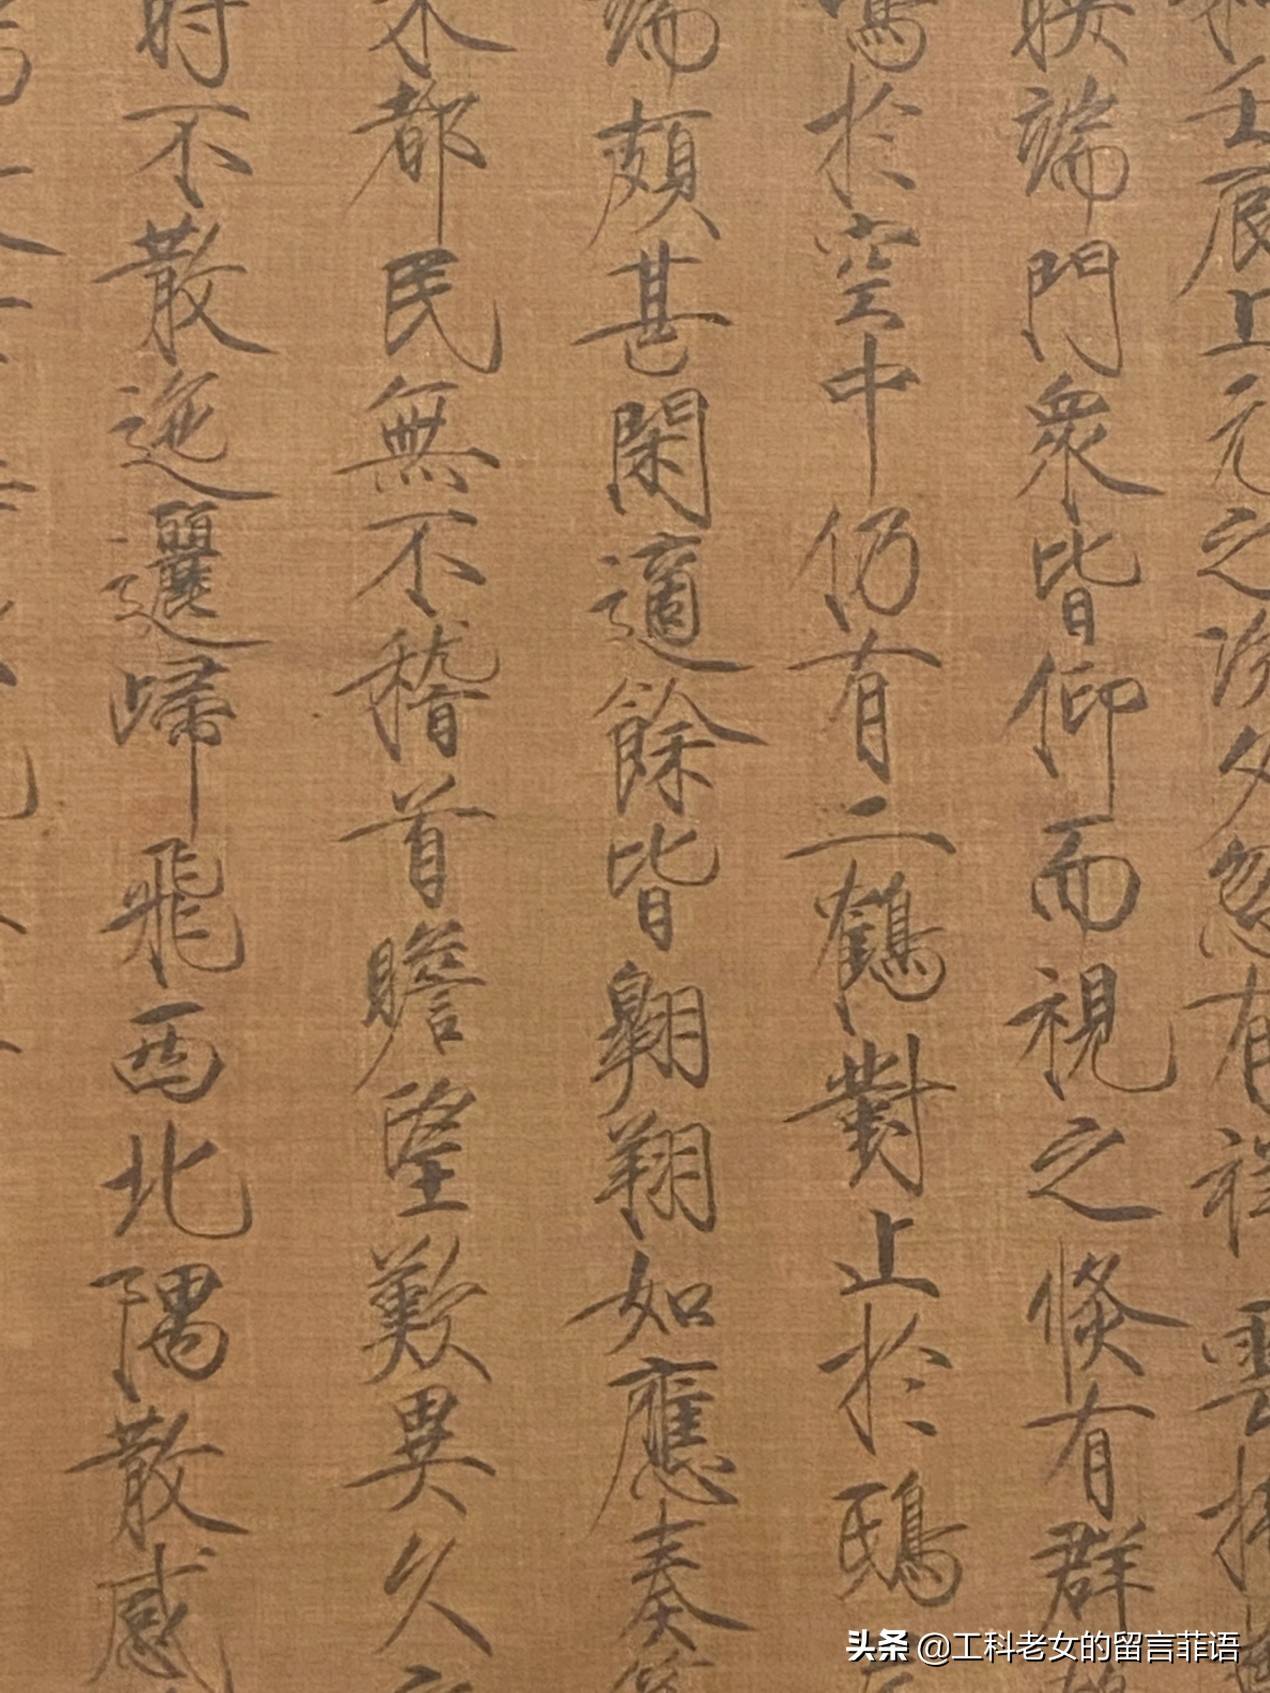 和壬辰上元之次夕忽有祥雲拂
映端門衆皆仰而視之倏有群
鳴於空中仍有二鶴對止於鴟
端頗甚閑適餘皆翱翔如應奏
來都民無不稽首瞻望歎異久
時不散迤邐歸飛西北隅散感
头条 @工科老女的留言菲语